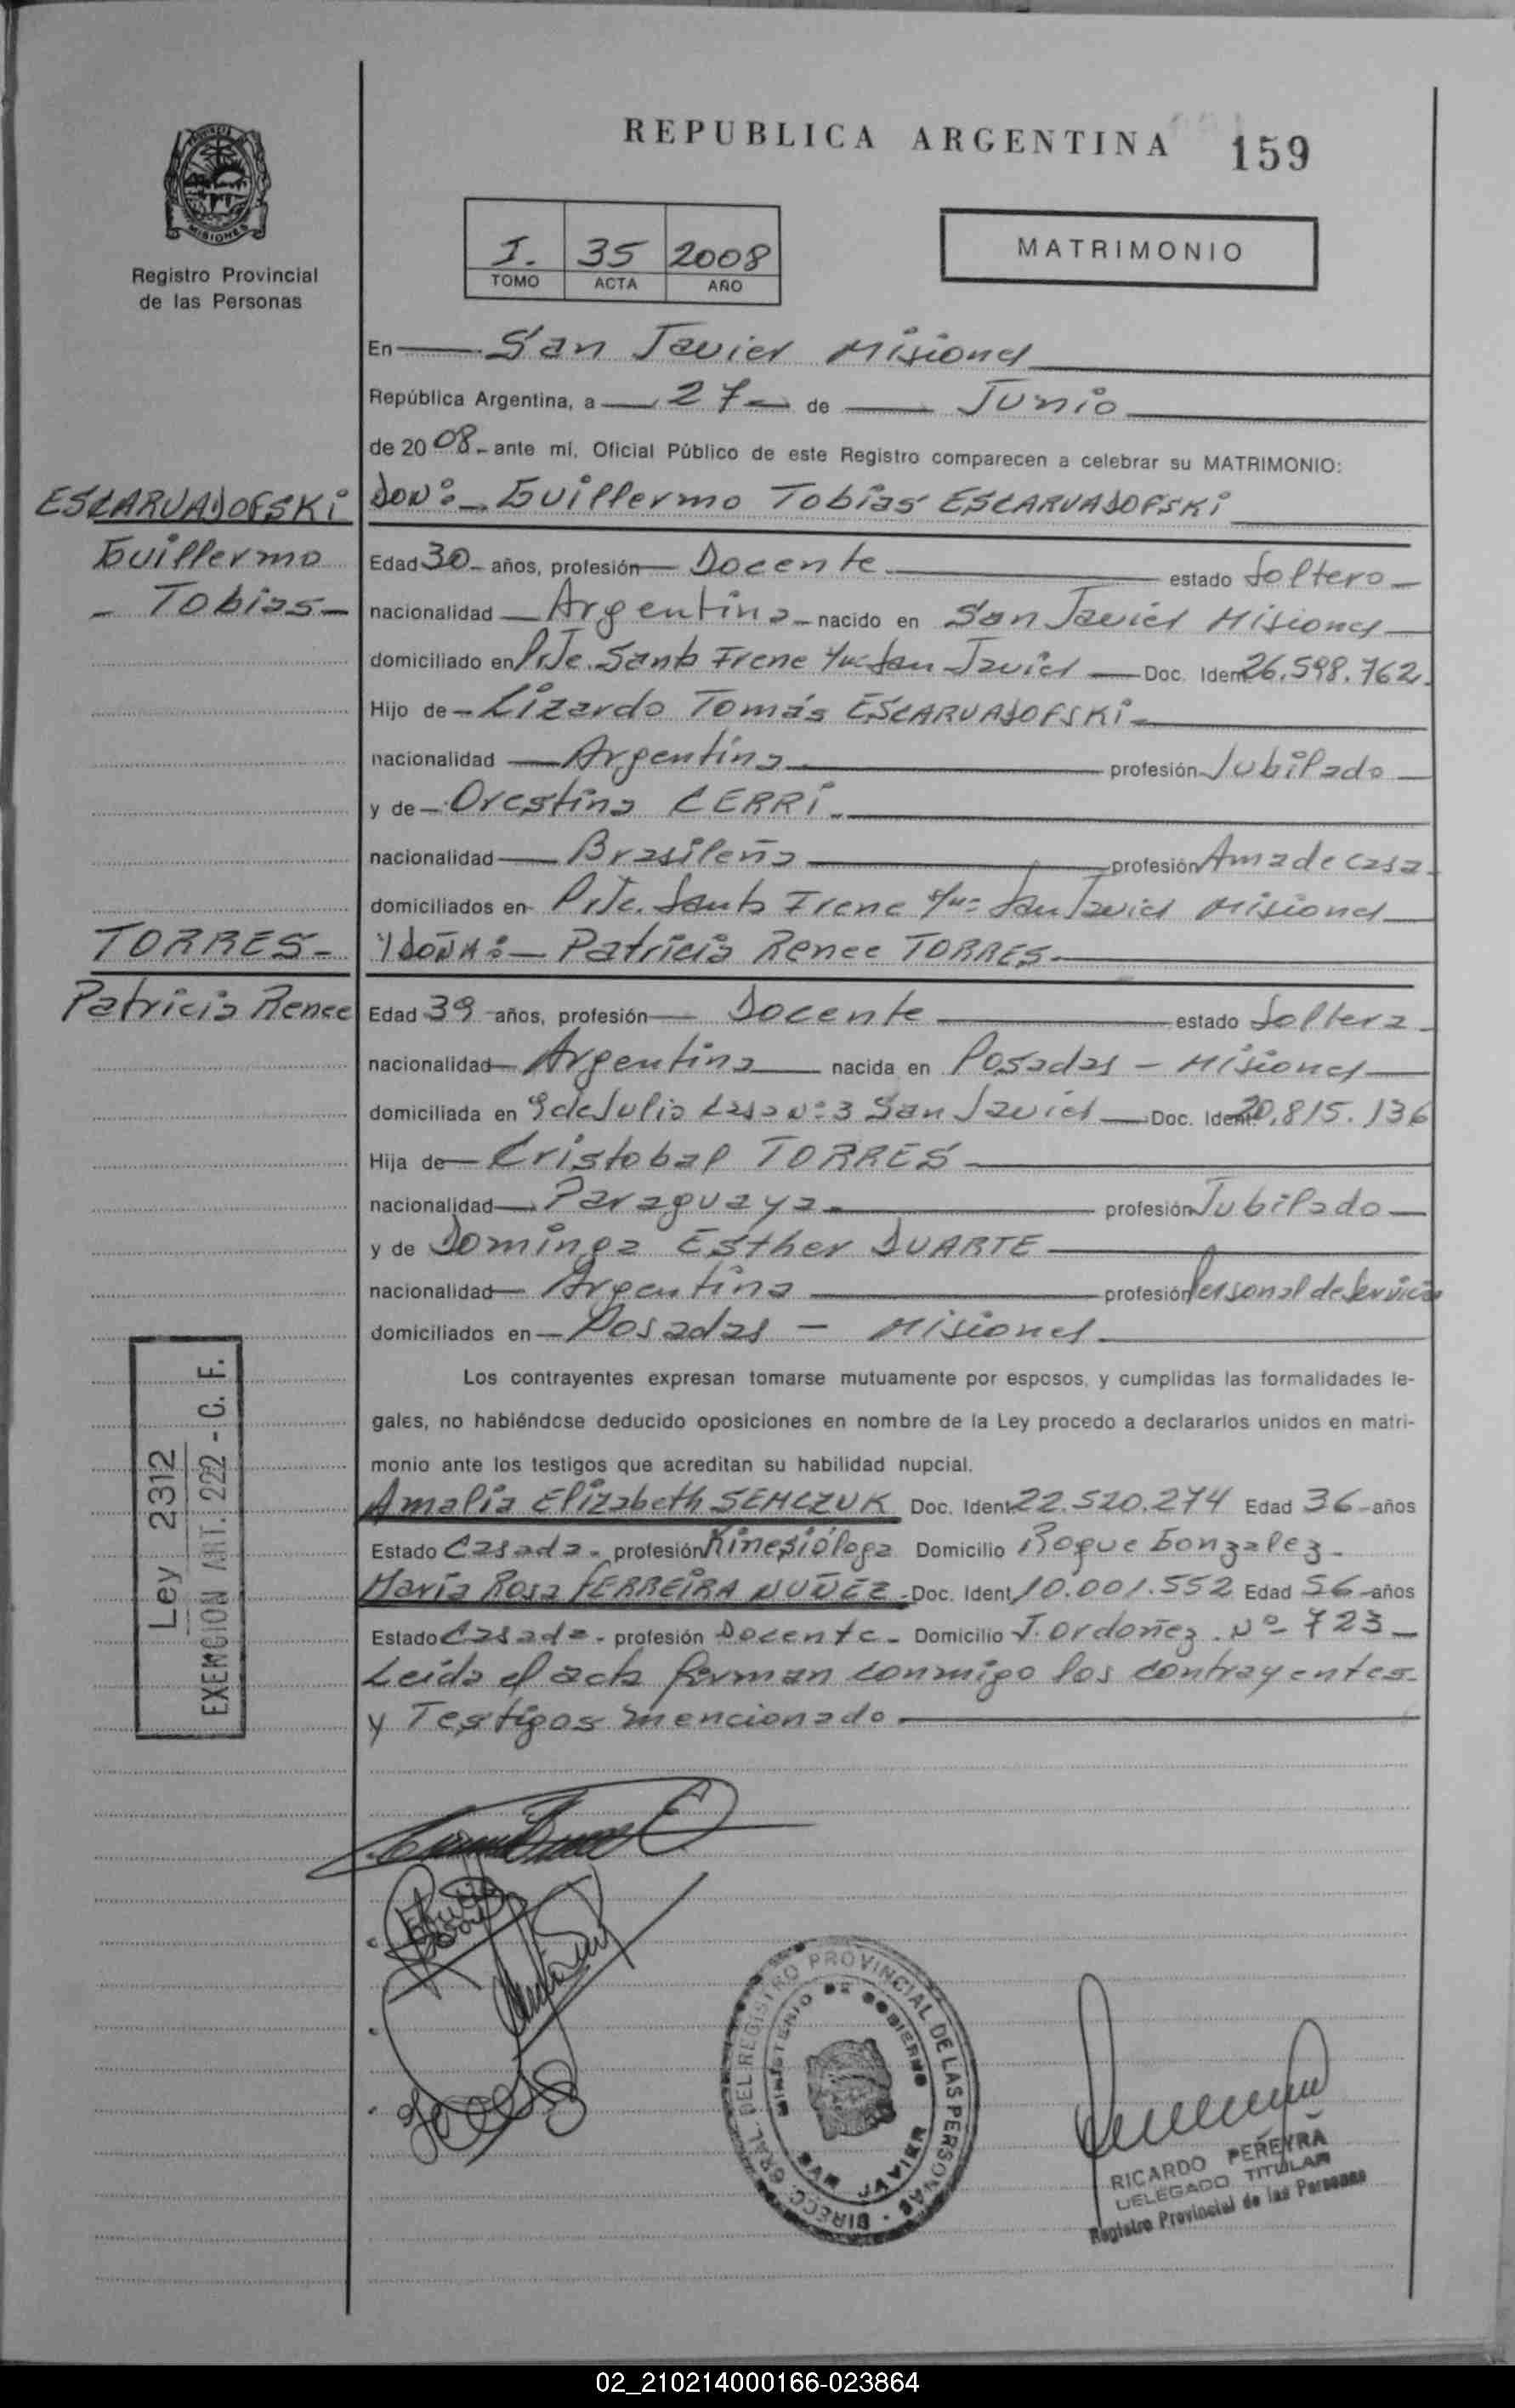 REPUBLICA ARGENTINA 159
MISIONES
Registro Provincial
de las Personas
I. 35 2008
TOMO ACTA AÑO
MATRIMONIO
En San Javier Misiones
República Argentina, a 27 de Junio
de 2008 ante mí, Oficial Público de este Registro comparecen a celebrar su MATRIMONIO:
ESCARVADOFSKi
Guillermo
Tobias
DON: Guillermo Tobias ESCARVADOFSKi
Edad 30 años, profesión Docente estado Soltero
nacionalidad Argentina nacido en San Javier Misiones
domiciliado en Pje. Santa Irene San Javier Doc. Ident. 26.598.762
Hijo de Lizardo Tomás ESCARVADOFSKi
nacionalidad Argentina profesión Jubilado
y de Orestina CERRi
nacionalidad Brasileña profesión Ama de casa
domiciliados en Pje. Santa Irene San Javier Misiones
TORRES
Patricia Renee
Y DOÑA: Patricia Renee TORRES
Edad 39 años, profesión Docente estado Soltera
nacionalidad Argentina nacida en Posadas - Misiones
domiciliada en 9 de Julio Casa Nº 3 San Javier Doc. Ident. 20.815.136
Hija de Cristobal TORRES
nacionalidad Paraguaya profesión Jubilado
y de Dominga Esther DUARTE
nacionalidad Argentina profesión Personal de Servicio
domiciliados en Posadas - Misiones
Los contrayentes expresan tomarse mutuamente por esposos, y cumplidas las formalidades le-
gales, no habiéndose deducido oposiciones en nombre de la Ley procedo a declararlos unidos en matri-
monio ante los testigos que acreditan su habilidad nupcial.
Amalia Elizabeth SEMCZUK Doc. Ident. 22.520.274 Edad 36 años
Estado Casada profesión Kinesióloga Domicilio Roque Gonzalez
María Rosa FERREiRA NUÑEZ Doc. Ident. 10.001.552 Edad 56 años
Estado Casada profesión Docente Domicilio J. Ordoñez Nº 723
Leída el acta firman conmigo los contrayentes
y Testigos mencionado
Ley 2312
EXENCION ART. 222 - C. F.
DIRECC. GRAL. DEL REGISTRO PROVINCIAL DE LAS PERSONAS
MINISTERIO DE GOBIERNO
SAN JAVIER
RICARDO PEREYRA
DELEGADO TITULAR
Registro Provincial de las Personas
02_210214000166-023864